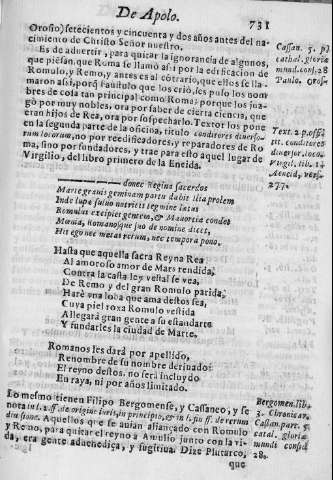 De Apolo.
731
Orosio) setecientos y cincuenta y dos años antes del na-
cimiento de Christo Señor nuestro.
Es de advertir, para quitar la ignorancia de algunos,
que piesan que Roma se llamó assi por la edificacion de
Romulo, y Remo, y antes es al cõtrario, que ellos se lla-
maron assi, porq̃ Faustulo que los criò, les puso los nom
bres de cosa tan principal como Roma; porque los juz-
gò por muy nobles, ora por saber de cierta ciencia, que
eran hijos de Rea, ora por sospecharlo. Textor los pone
en la segunda parte de la oficina, titulo conditores diverso-
rum locorum, no por reedificadores, y reparadores de Ro
ma, sino por fundadores, y trae para esto aquel lugar de
Virgilio, del libro primero de la Eneida.
Cassan. 5. p.
cathal. gloriæ
mund. conf. 28
Paulo. Oros.
Text. 2. p. offi.
tit. conditores
diversor. loco.
Virgil. lib. 1.
Aeneid, vers.
277.
donec Regina sacerdos
Marte gravis geminam partu dabit Ilia prolem
Inde lupæ fulvo nutricis tegmine lætus
Romulus excipiet gentem, & Mavortia condet
Mœnia, Romanosque suo de nomine dicet,
His ego nec metas rerum, nec tempora pono.
Hasta que aquella sacra Reyna Rea
Al amoroso amor de Mars rendida,
Contra la casta ley vestal se vea,
De Remo y del gran Romulo parida;
Harè vna loba que ama destos sea,
Cuya piel roxa Romulo vestida
Allegarà gran gente a su estandarte
Y fundarles la ciudad de Marte.
Romanos les darà por apellido,
Renombre de su nombre derivado:
El reyno destos, no serà incluydo
En raya, ni por años limitado.
Lo mesmo tienen Filipo Bergomense, y Cassaneo, y se
nota in l. 2. ff. de origine iuris, in principio, & in l. fin. ff. de rerum
divisione. Aquellos que se auian aliançado con Romulo
y Remo, para quitar el reyno a Amulio junto con la vi-
da, era gente aduenediça, y fugitiua. Dize Plutarco,
que
Bergomen. lib.
3. Chronicar.
Cassan. par. 5.
catal. gloriæ
mundi consid
28.